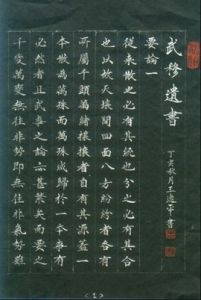 武穆遺書
要論一
從來散之必有其統也分之必有其合
也以故天壤間四面八方紛紛者各有
所屬千頭萬緒攘攘者自有其源蓋一
本散為萬殊而萬殊咸歸於一本事有
必然者且武事之論亦甚繁矣而要之
千變萬變無往非勢即無往非氣勢雖
丁亥秋月王
書
〈1〉